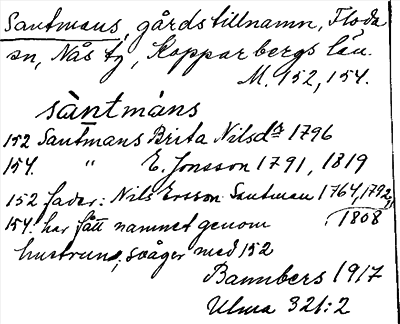 Santmans, gårdstillnamn, Floda
sn, Nås tg, Kopparbergs län.
M. 152, 154.
sàntmáns
152 Santmans Brita Nilsdr 1796
154. " E. Jonsson 1791, 1819
152 fader: Nils Ersson Santman 1764, 1792,
1808
154. har fått namnet genom
hustrun, svåger med 152
Bannbers 1917
Ulma 321:2